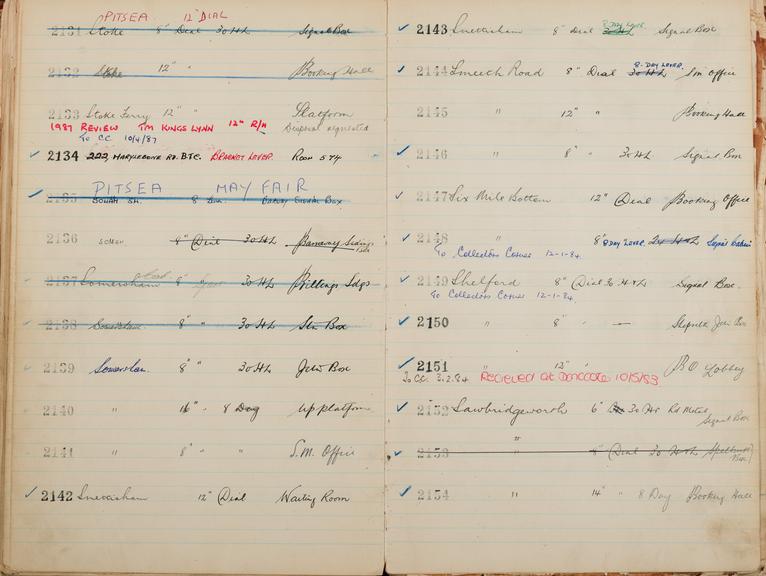 PITSEA 12" DIAL
2131 Stoke 8" Dial 30 Hr Signal Box
2132 Stoke 12" " Booking Hall
2133 Stoke Ferry 12" " Platform
1987 REVIEW TM KINGS LYNN 12" R/H Disposal requested
To CC 10/4/87
2134 222, MARYLEBONE RD. B.T.C. BRACKET LEVER. ROOM 574
PITSEA MAYFAIR
2135 SOHAM SM. 8" Dial Signal Box
2136 SOHAM 8" Dial 30 Hr Sidings Box
2137 Somersham 8" 30 Hr Sdgs
2138 Somersham 8" " 30 Hr Box
2139 Somersham 8" " 30 Hr Box
2140 " 16" 8 Day Up platform
2141 " 8" " S.M. Office
2142 Snettisham 12" Dial Waiting Room
2143 Snettisham 8" Dial 8 DAY LEVER 30 Hr Signal Box
8-DAY LEVER.
2144 Smeeth Road 8" Dial 30 Hr Sm Office
2145 12" " Booking Hall
2146 " 8" " 30 Hr Signal Box
2147 Six Mile Bottom 12" Dial Booking Office
2148 " 8" 8 DAY LEVER 30 Hr Signal Cabin
To Collectors Corner 12-1-84.
2149 Shelford 8" Dial 30 Hr Signal Box
To Collectors Corner 12-1-84.
2150 " 8" — Shepreth Jcn Box
2151 " 12" B O Lobby
To CC. 3.2.84 RECIEVED AT DONCASTER 10/5/83
2152 Sawbridgeworth 6" 30 Hr Rd Metal Signal Box
2153 " 8" Dial 30 Hr Spellbrook Box
2154 " 14" " 8 Day Booking Hall